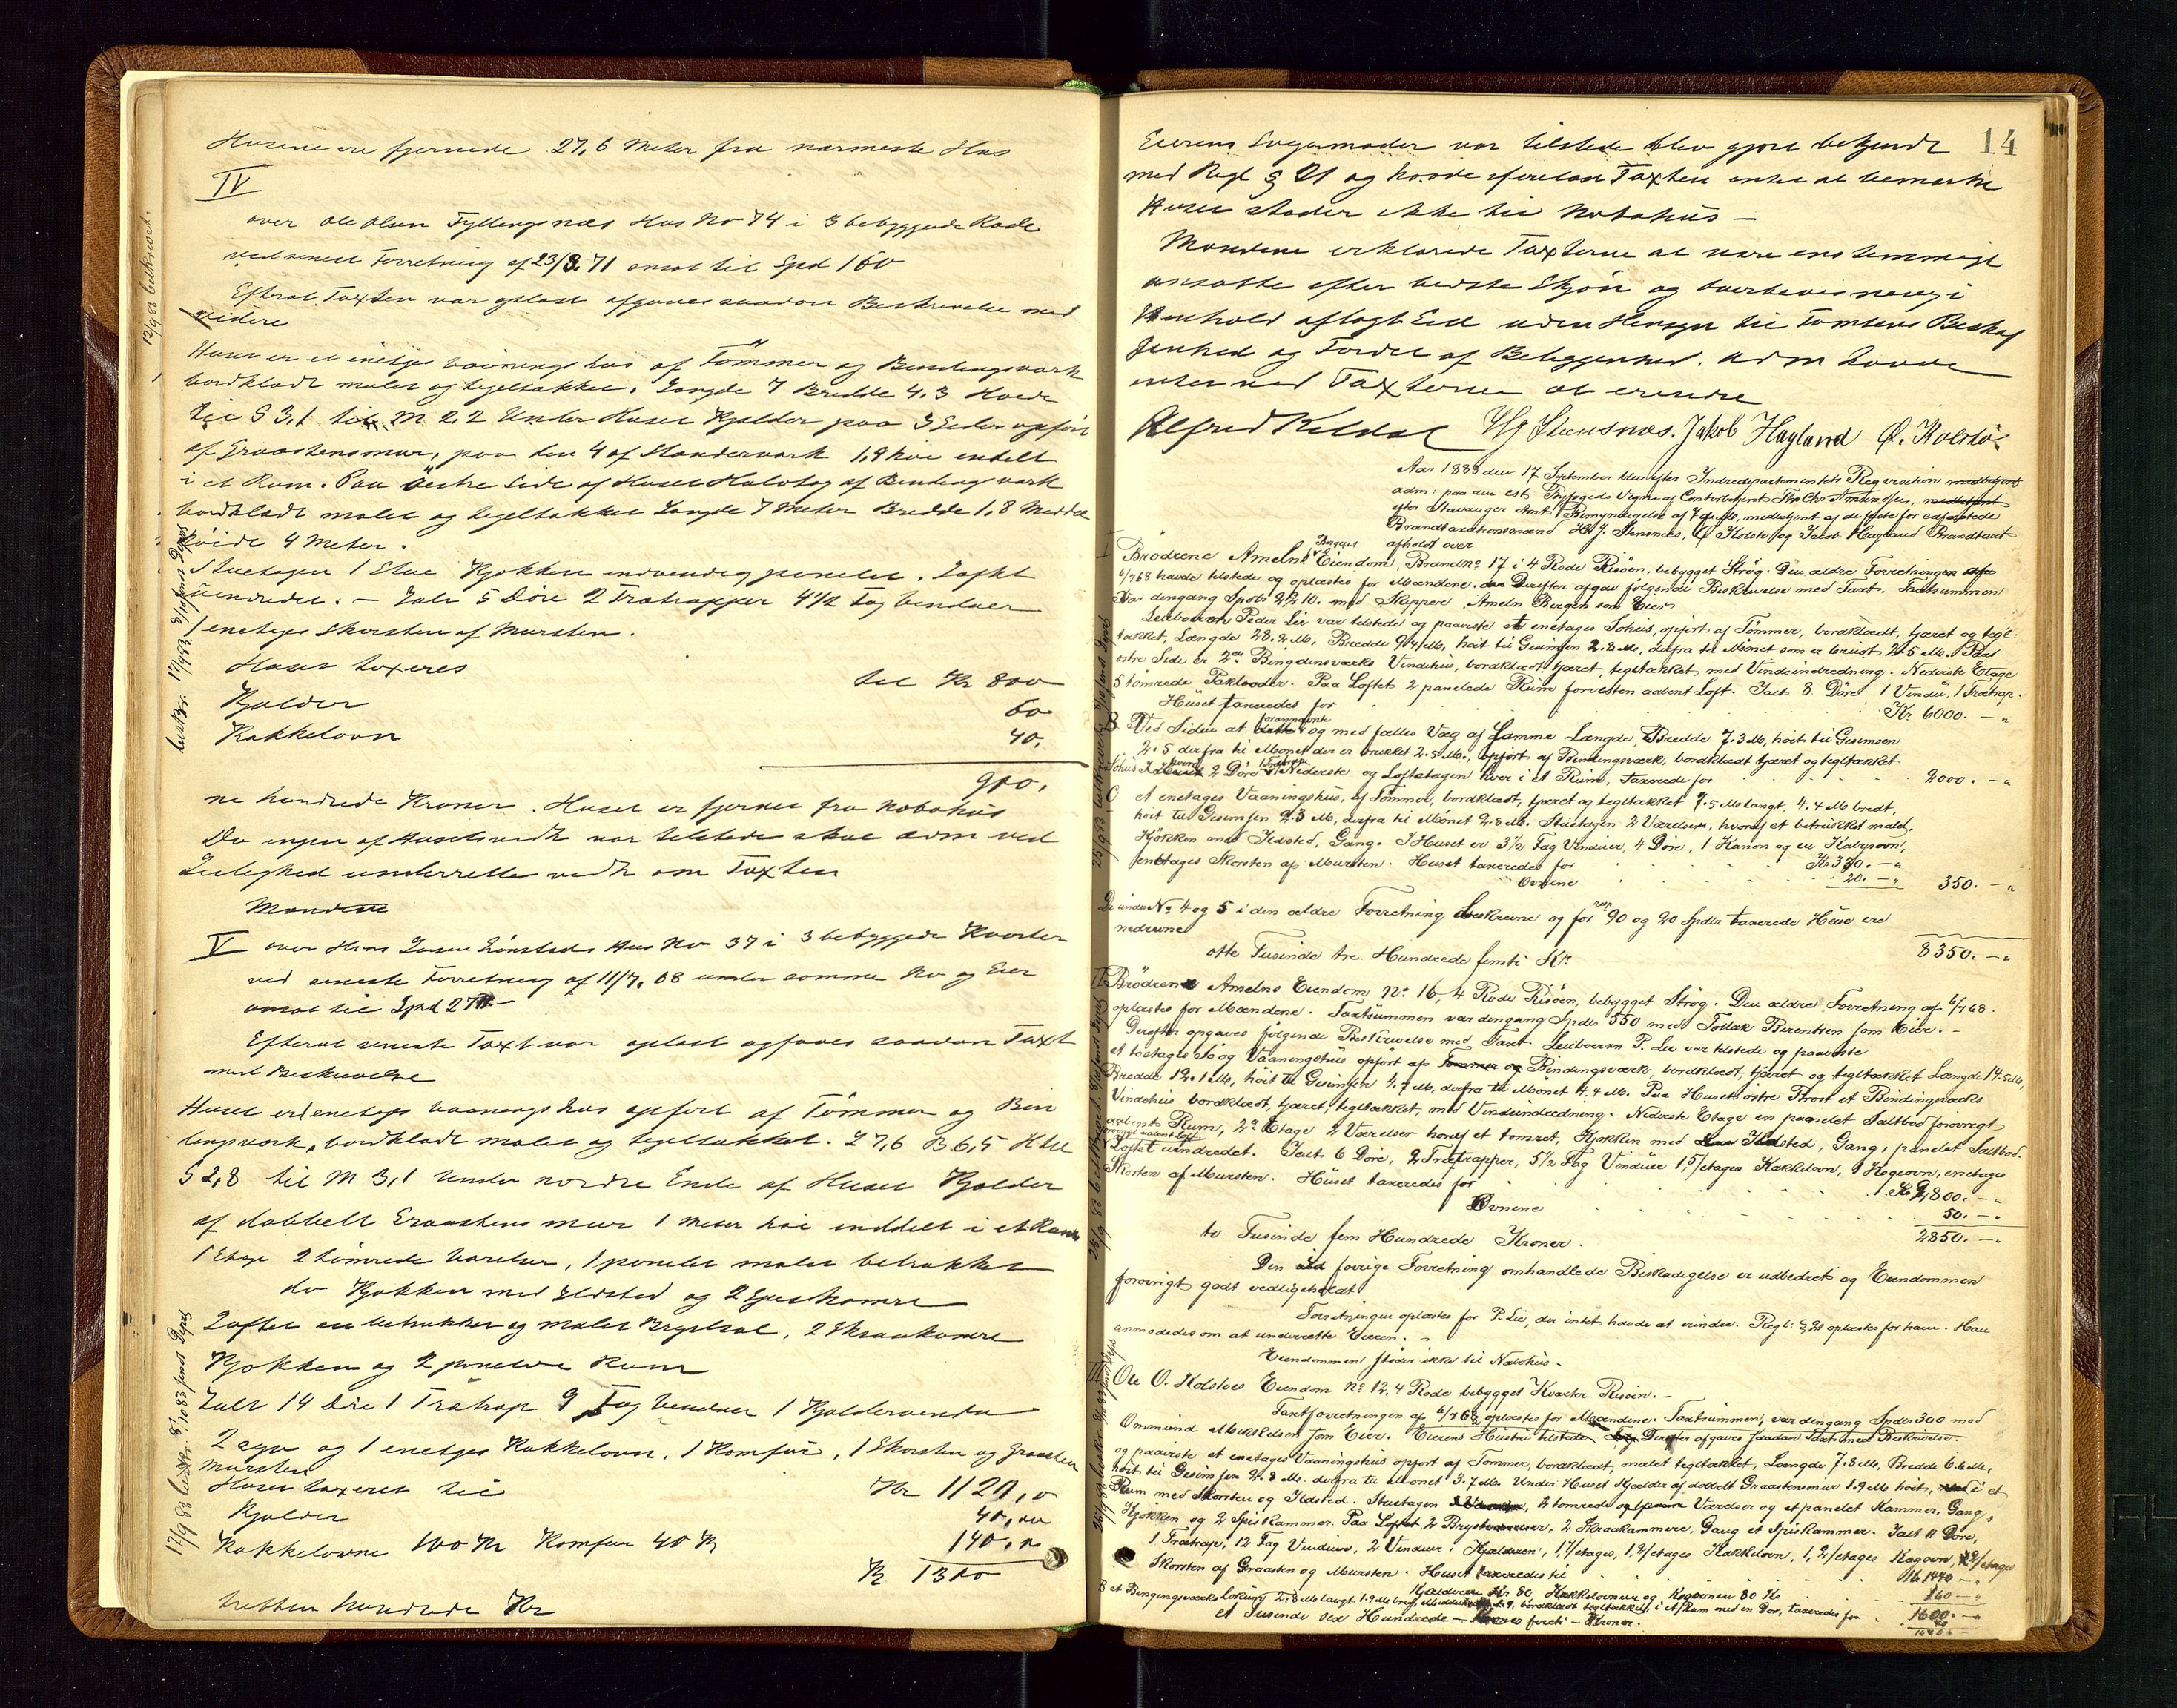 Husene ere fjernede 27,6 Meter fra nærmeste Hus
IV
over Ole Olsen Fyllingsnæs Hus No 74 i 3 bebyggede Rode
ved senest Forretning af 23/8.71 ansat til Spd 160
Efterat Taxten var oplæst afgaves saadan Beskrivelse med
videre
Huset er et enetges vaanings hus af Tömmer og Bindingsværk
bordklædt malet og tegeltækket. Længde 7 Bredde 4.3 Høide
til G 3,1 til M 2,2 Under Huset Kjælder paa 3 Sider opfört
af Graastensmur, paa den 4 af Standerværk 1,9 høi indelt
i et Rum. Paa östre Side af Huset Halvtag af Bindingsværk
bordklædt malet og tegeltækket Længde 7 Meter Bredde 1,8 Middel
høide 4 Meter.
I Stuetagen 1 Stue Kjøkken indvendig panelet. Loftet
uindredet. – Ialt 5 Döre 2 Trætrapper 4 1/2 Fag vinduer
1 enetges Skorsten af Mursten.
Huset taxeres til Kr 800
Kjælder 60
Kakkelovn 40.
900.
ni hundrede Kroner. Huset er fjernet fra Nabohus
Da ingen af Husets vedk var tilstede skal adm ved
Leilighed underrette vedk om Taxten
Mændene
V over Hans Larsen Lönstads Hus No 37 i 3 bebyggede Kvarter
ved seneste Forretning af 11/7.68 under samme No og Eier
ansat til Spd 270 –
Efterat seneste Taxt var oplæst afgaves saadan Taxt
med Beskrivelse
Huset er 1 enetages vaanings hus opført af Tömmer og Bin
dingsværk, bordklædt malet og tegeltækket. L 7,6 B 6,5 H til
G 2,8 til M 3,1 Under nordre Ende af Huset Kjælder
af dobbelt Graastens mur 1 Meter høi inddelt i et Rum
1 Etage 2 tömrede Værelser, 1 panelet malet betrækket
do Kjøkken med Ildsted og 2 Spiskamre
Loftet en betrukket og malet Brystsal, 2 Skraakamre
Kjøkken og 2 panelede Rum
Ialt 14 Döre 1 Trætrap 9 Fag Vinduer 1 Kjældervindu
2 og 1 enetges Kakkelovn, 1 Komfur, 1 Skorsten og Graasten
Mursten
Huset taxeret til Kr 1120,00
Kjælder 40,00
Kakkelovne 100 Kr Komfur 40 Kr 140,00
Kr 1300
tretten hundrede Kr
12/9 83 beskrevet.
beskr. 17/9 83. 3/10 sendt Depes
17/9 83 beskr. 3/10 83 sendt Depes
14
Eierens Svigermoder var tilstede blev gjort bekjendt
med Regl § 21 og havde oplæst Taxten intet at bemærke
Huset støder ikke til Nabohus –
Mændene erklærede Taxterne at være enstemmigt
ansatte efter bedste Skjön og overbevisning i
Henhold aflagt Eed uden Hensyn til Tomtens Beskaf
fenhed og Fordel af Beliggenhed. Adm havde
intet ved Taxterne at erindre
Alfred Kieldal HJ Stensnæs. Jakob Hagland Ø. Kolstö
Aar 1883 den 17 September blev efter Indredepartementets Reqvisition
adm: paa den cst Byfogeds Vegne af Contorbetjent Ths Chr Amundsen,
efter Stavanger Amts Bemyndigelse af 7 ds Mo, medbetjent af de faste for edfæstede
Brandtaxtionsmænd H. J. Stensnæs, Ø Kolstö og Jakob Hagland Brandtaxt
afholdt over
I Brödrene Amelns Bergens Eiendom, Brandno. 17 i 4 Rode Risöen, bebygget Strög. Den ældre Forretning
6/7 68 havde tilstede og oplæstes for Mændene. Derefter afgav fölgende Beskrivelse med Taxt. Taxtsummen
var dengang Spds 2210. med Skipper Ameln Bergen som Eier
Leieboeren Peder Lie var tilstede og paaviste et enetages Söhus, opfört af Tömmer, bordklædt, tjæret og tegl
tækket, Længde 28.2 M, Bredde 9.4 M, höit til Gesimsen 2.8 M, derfra til Mönet som er brudt 2.5 M. Paa
östre Side er 2de Bindingsværks Vindehus, bordklædt tjæret, tegltækket med Vindeindredning. Nederste Etage
5 tömrede Pakboder. Paa Loftet 2 panelede Rum forresten aabent Loft. Ialt 8 Döre 1 Vindu, 1 Trætrap.
Huset taxeredes for Kr. 6000. – "
B Ved Siden af forannævnte og med fælles Væg af Samme Længde, Bredde 7.3 M, höit til Gesimsen
2.5 derfra til Mönet der er brukket 2.5 M., opfört af Bindingsværk, bordklædt tjæret og tegltækket
Söhus hvori 2 Döre 1 Trætrap Nederste og Loftetagen hver i et Rum, taxerede for 2000. – "
C et enetages Vaaningshus, af Tömmer, bordklædt, tjæret og tegltækket 7.5 M langt, 4.4 M bredt,
höit til Gesimsen 2.3 M, derfra til Mönet 2.8 M. Stuetagen 2 Værelser, hvoraf et betrukket malet,
Kjökken med Ildsted, Gang. I Huset er 3 1/2 Fag Vinduer, 4 Döre, 1 Kanon og en Kabysovn,
enetages Skorsten af Mursten. Huset taxeredes for Kr 330. – "
Ovnene 20. – " 350. – "
De under No 4 og 5 i den ældre Forretning beskrevne og for resp 90 og 20 Spdlr taxerede Huse ere
nedrevne
8350. – "
otte Tusinde tre Hundrede femti Kr.
II Brödrene Amelns Eiendom No 16, 4 Rode Risöen, bebygget Strög. Den ældre Forretning af 6/7 68.
oplæstes for Mændene. Taxtsummen var dengang Spdlr 550 med Tollak Berentsen som Eier. –
Derefter opgaves fölgende Beskrivelse med Taxt. Leieboeren P. Lie var tilstede og paaviste
et toetages Sö og Vaaningshus opfört af Tömmer og Bindingsværk, bordklædt, tjæret og tegltækket Længde 14.5 M,
Bredde 12.1 M, höit til Gesimsen 4.7 M, derfra til Mönet 4.4 M. Paa Husets östre Front et Bindingsværks
Vindehus bordklædt, tjæret, tegltækket, med Vindeindredning. Nederste Etage en panelet Saltbod forövrigt
aabent Rum, 2n Etage 2 Værelser hvoraf et tömret, Kjökken med Ildsted, Gang, panelet Saltbod.
Loftet uindredet. Ialt 6 Döre, 2 Trætrapper, 5 1/2 Fag Vinduer 1, 5/etages Kakkelovn, 1 Kogeovn, enetages
Skorsten af Mursten. Huset taxeredes for Kr 2,800. – "
Ovnene 50. – "
2850. – "
to Tusinde fem Hundrede Kroner.
Den i forrige Forretning omhandlede Beskadigelse er udbedret og Eiendommen
forövrigt godt vedligeholdt
Forretningen oplæstes for P. Lie, der intet havde at erindre. Regl: § 21 oplæstes for ham. Han
anmodedes om at underrette Eieren. –
Eiendommen stöder ikke til Nabohus. –
III Ole O. Kolstöes Eiendom No 12, 4 Rode bebygget Kvarter Risöen. –
Taxtforretningen af 6/7 68 oplæstes for Mændene. Taxtsummen, var dengang Spdlr 300 med
Ommund Mikkelsen som Eier. Eierens Hustru tilstede. Derefter afgaves saadan Taxt med Beskrivelse.
og paaviste et enetages Vaaningshus opfört af Tömmer, bordklædt, malet tegltækket, Længde 7.8 M, Bredde 6.6 M,
höit til Gesimsen 2.8 M. derfra til Mönet 3.7 M. Under Huset Kjælder af dobbelt Graastensmur 1.9 M höit, i et
Rum med Skorsten og Ildsted. Stuetagen 2 tömrede Værelser og et panelet Kammer, Gang,
Kjökken og 2 Spiskammer. Paa Loftet 2 Brystværelser, 2 Skraakammere, Gang et Spiskammer. Ialt 11 Döre,
1 Trætrap, 12 Fag Vinduer, 2 Vinduer i Kjælderen, 1, 1/etages, 1, 2/etages Kakkelovn, 1, 2/etages Kogovn,
Skorsten af Graasten og Mursten. Huset taxeredes til Kr 1440 – "
Kjælderen Kr 80, Kakkelovnene og Kogovnen 80 Kr 160 – "
B et Bingingsværks Lokum 2.8 M langt 1.9 M bred, Middelhöit 1.9, bordklædt tegltækket, i et Rum med en Dör, taxeredes for
1600. – "
et Tusinde sex Hundrede – firti – Kroner.